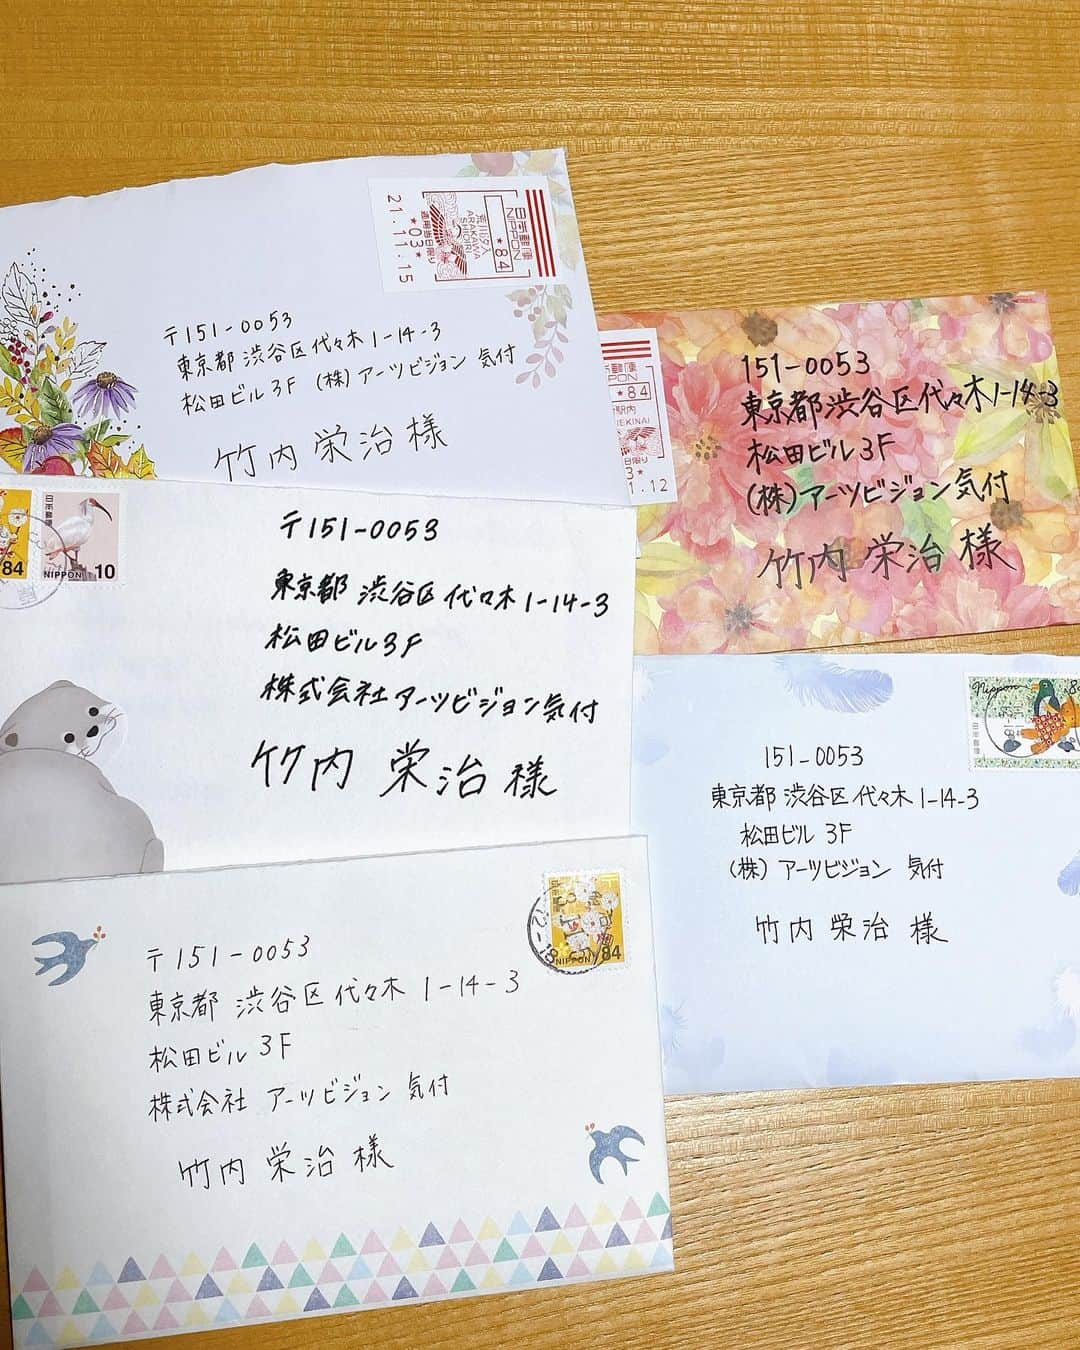 日本郵便
NIPPON
*84
荒川汐入
ARAKAWA
SHIOIRI
適用当日限り
*03*
21.11.15
〒151-0053
東京都渋谷区代々木1-14-3
松田ビル3F (株)アーツビジョン 気付
竹内栄治様
郵便
PON
*84
駅内
EKINAI
日限り
3*
1.12
151-0053
東京都渋谷区代々木1-14-3
松田ビル3F
(株)アーツビジョン気付
竹内栄治様
84
日本郵便
NIPPON 10
〒151-0053
東京都 渋谷区 代々木1-14-3
松田ビル3F
株式会社アーツビジョン気付
竹内 栄治様
Nippon
8
日本郵便
151-0053
東京都 渋谷区 代々木1-14-3
松田ビル 3F
(株) アーツビジョン 気付
竹内 栄治 様
日本郵便
NIPPON 84
〒151-0053
東京都 渋谷区代々木 1-14-3
松田ビル 3F
株式会社 アーツビジョン 気付
竹内 栄治 様